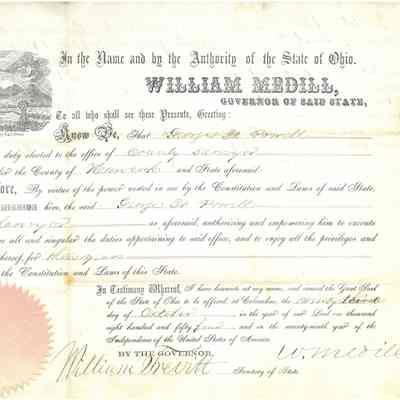 In the Name and by the Authority of the State of Ohio.
WILLIAM MEDILL,
GOVERNOR OF SAID STATE,
To all who shall see these Presents, Greeting:
Know Ye, That George Powell
duly elected to the office of County Surveyor
the County of Hancock and State aforesaid
ORE, By virtue of the power vested in me by the Constitution and Laws of said State,
him, the said George Powell
as aforesaid, authorizing and empowering him to execute
all and singular the duties appertaining to said office, and to enjoy all the privileges and
thereof, for
the Constitution and Laws of this State.
In Testimony Whereof, I have hereunto set my name, and caused the Great Seal
of the State of Ohio to be affixed, at Columbus, the twenty
day of October in the year of our Lord one thousand
eight hundred and fifty four and in the seventy-ninth year of the
Independence of the United States of America.
BY THE GOVERNOR, W. Medill
William Trevitt Secretary of State